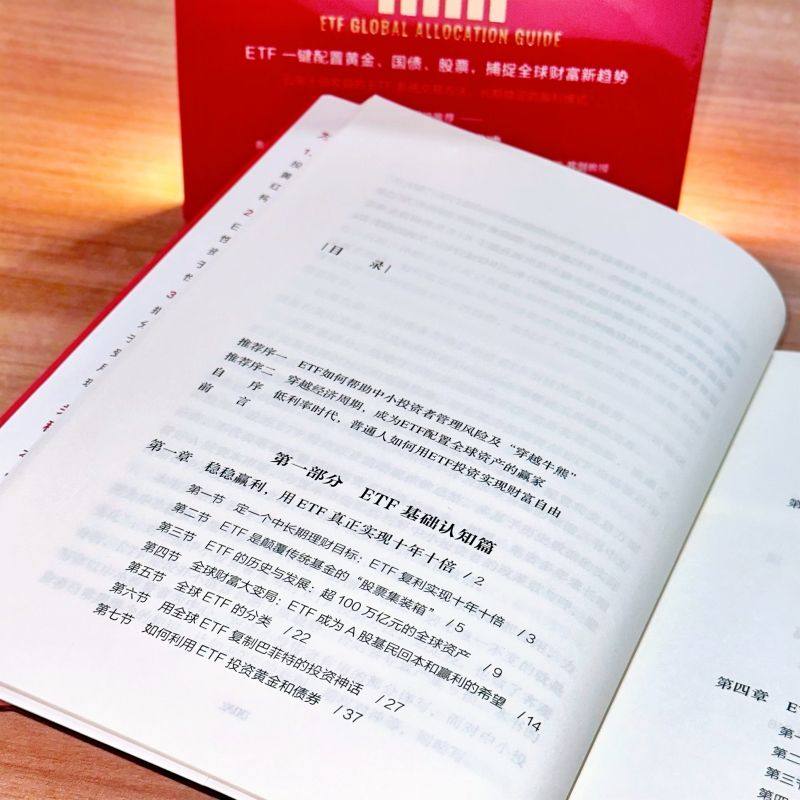 ETF GLOBAL ALLOCATION GUIDE
ETF 一键配置黄金、国债、股票，捕捉全球财富新趋势
目 录
推荐序一 ETF如何帮助中小投资者管理风险及“穿越牛熊”
推荐序二 穿越经济周期，成为ETF配置全球资产的赢家
自 序 低利率时代，普通人如何用ETF投资实现财富自由
前 言
第一部分 ETF 基础认知篇
第一章 稳稳赢利，用 ETF 真正实现十年十倍 / 2
第一节 定一个中长期理财目标：ETF 复利实现十年十倍 / 3
第二节 ETF 是颠覆传统基金的“股票集装箱” / 5
第三节 ETF 的历史与发展：超 100 万亿元的全球资产 / 9
第四节 全球财富大变局：ETF 成为 A 股基民回本和赢利的希望 / 14
第五节 全球 ETF 的分类 / 22
第六节 用全球 ETF 复制巴菲特的投资神话 / 27
第七节 如何利用 ETF 投资黄金和债券 / 37
第四章
第一
第二
第三
第四